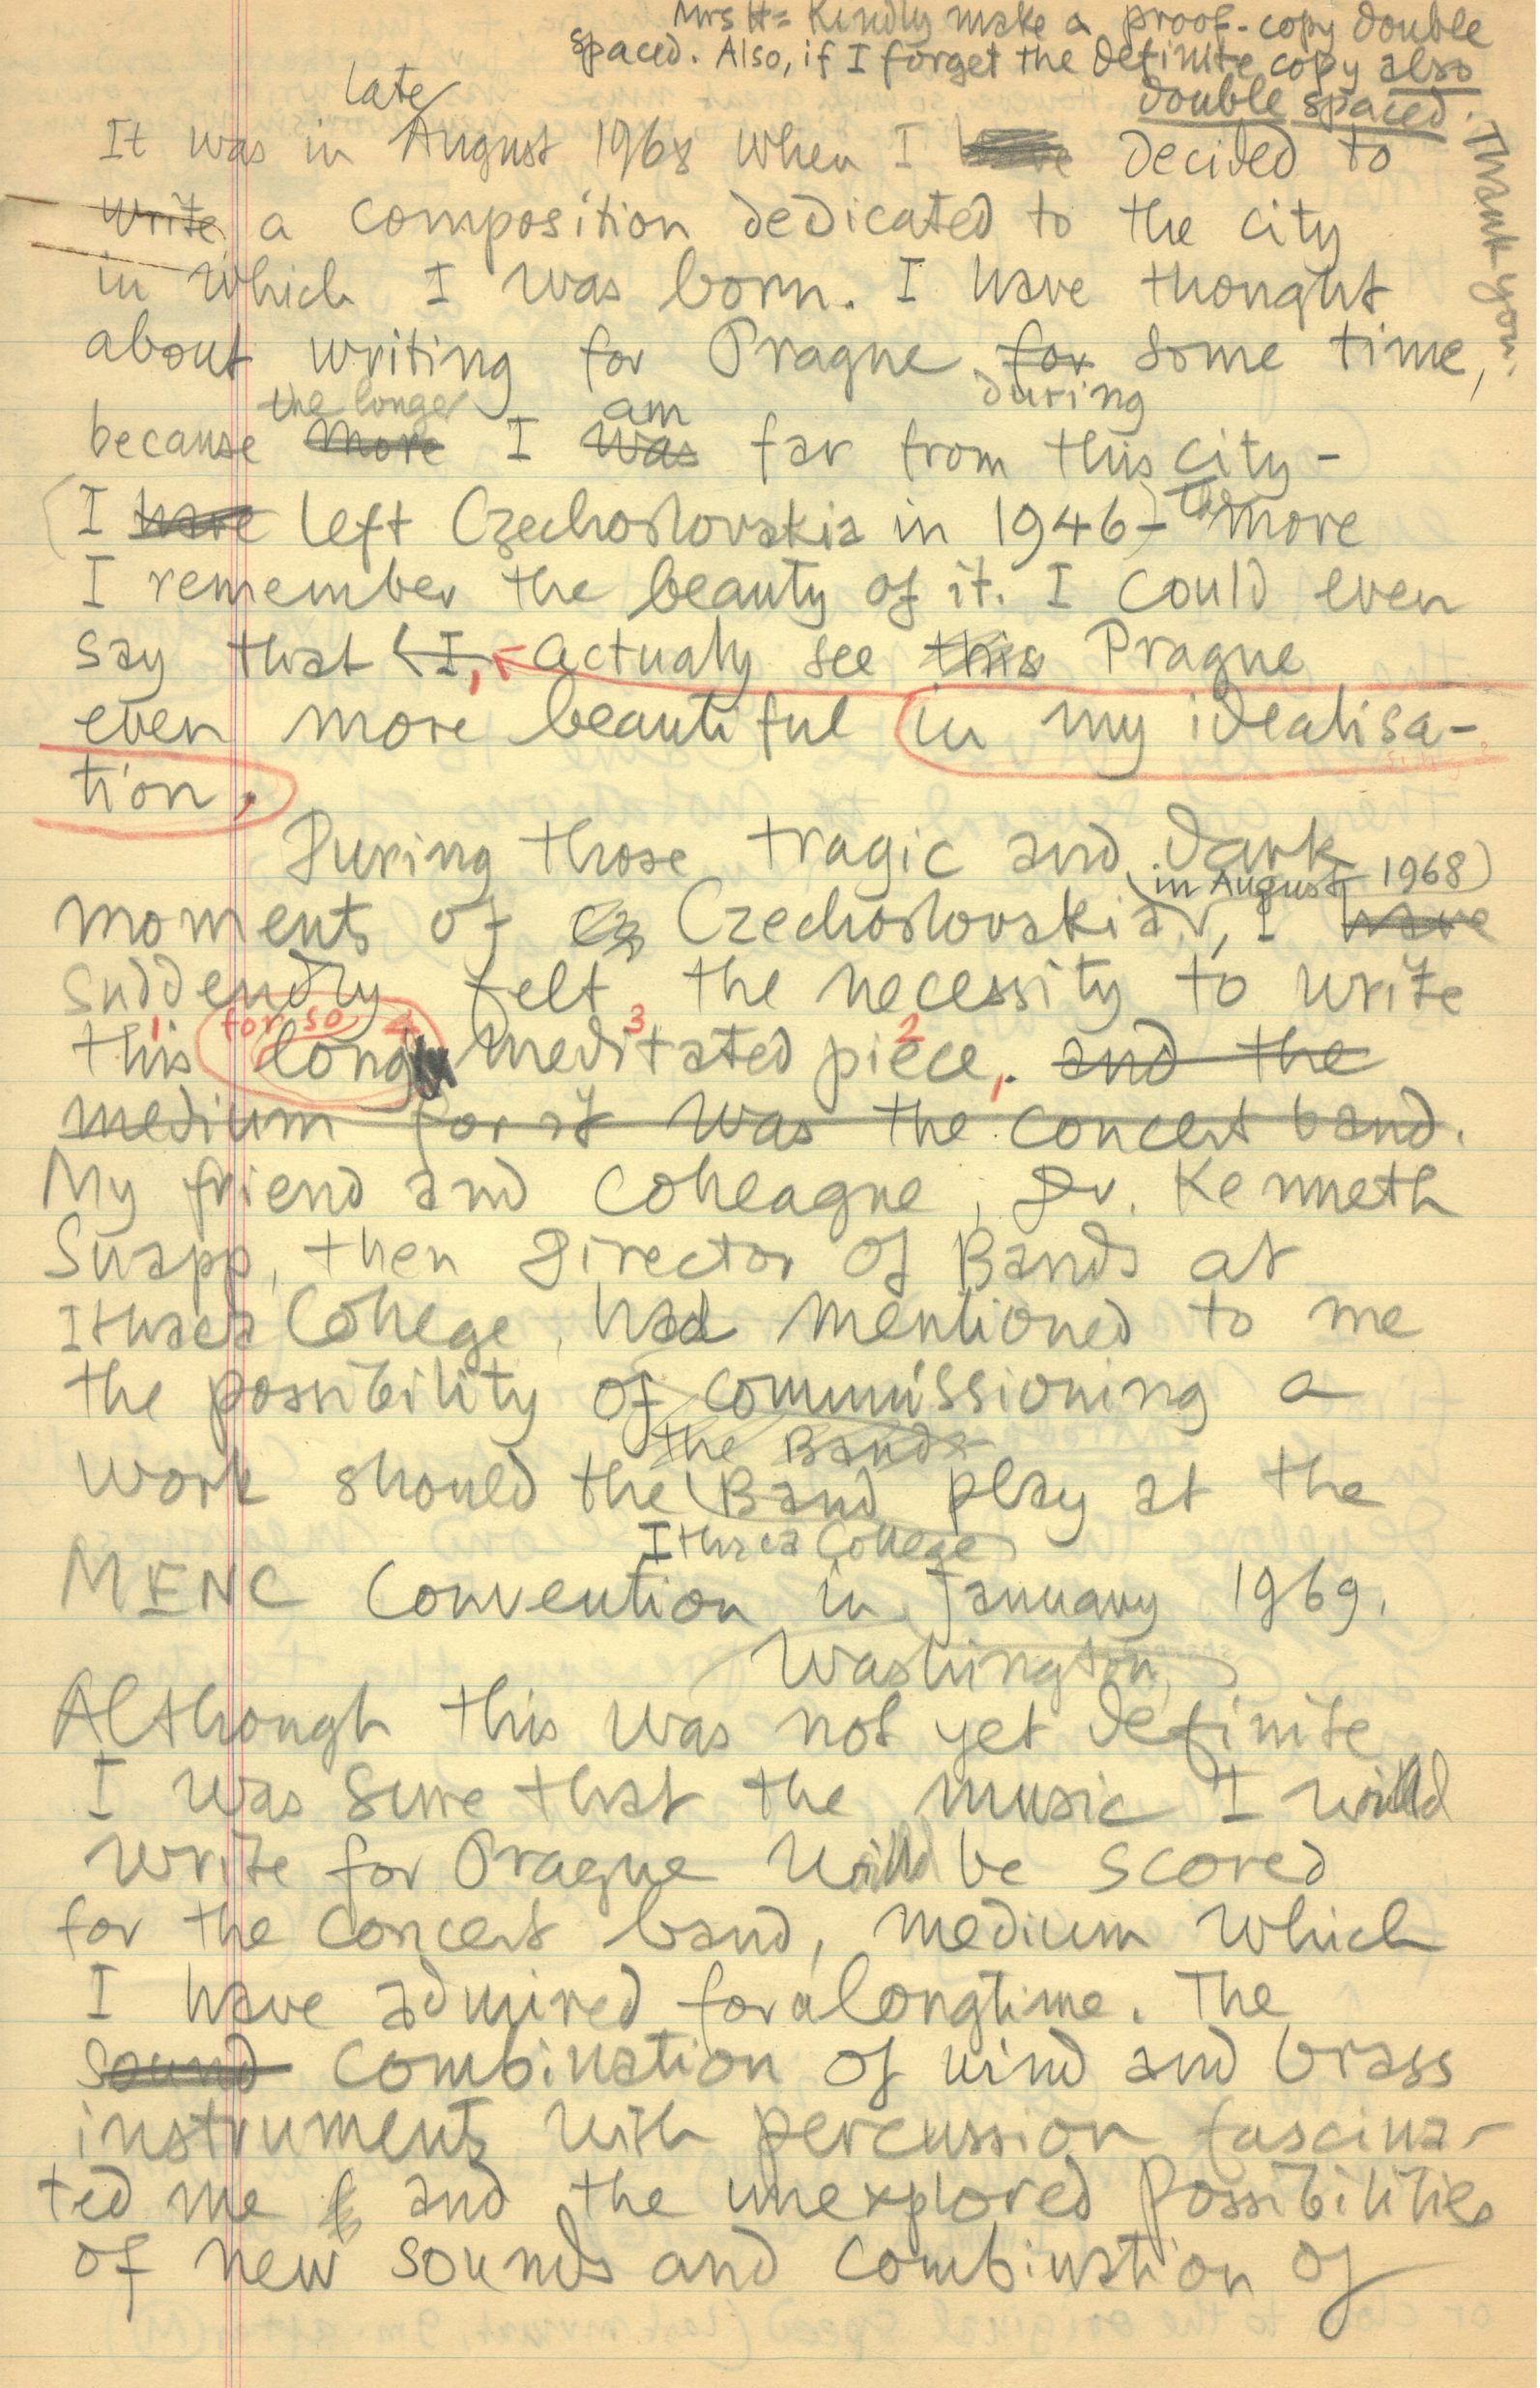 Mrs H= Kindly make a proof-copy double
spaced. Also, if I forget the definite copy also
double spaced.
Thank you!
late
It was in August 1968 when I have decided to
write a composition dedicated to the city
in which I was born. I have thought
about writing for Prague for some time,
during
the longer am
because more I was far from this city -
(I have left Czechoslovakia in 1946) - the more
I remember the beauty of it. I could even
say that I, actualy see this Prague
even more beautiful in my idealisa-
tion.
During those tragic and dark
(in August 1968)
moments of Cz Czechoslovakia, I have
suddendly felt the necessity to write
1 for so 3 2
this long meditated piece, . and the
medium for it was the concert band.
My friend and colleague, Dr. Kenneth
Snapp, then Director of Bands at
Ithaca College, had mentioned to me
the possibility of commissioning a
the Band
work should the Band play at the
Ithaca College
MENC Convention in January 1969.
Washington
Although this was not yet definite
I was sure that the music I would
write for Prague would be scored
for the concert band, medium which
I have admired for a long time. The
sound combination of wind and brass
instruments with percussion fascina-
ted me and the unexplored possibilities
of new sounds and combination of